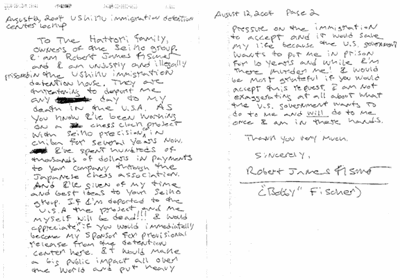 August 12, 2004 Ushiku immigration detention
center lockup
To The Hattori family,
owners of the Seiko group.
I am Robert James Fischer
and I am unjustly and illegally
prisoner in the Ushiku immigration
detention house. They are
threatening to deport me
any day to my
death in the USA. As
you know I've been working
on a chess clock project
with Seiko precision, in
chiba for several years now
I've spent hundreds of
thousands of dollars in payments
to your company through the
Japanese chess association.
And I've given of my time
and best ideas to your Seiko
group. If I'm deported to the
U.S.A the project and me
myself will be dead!!! I would
appreciate, if you would immediately
become my sponsor for provisional
release from the detention
center here. It would make
a big public impact all over
the world and put heavy
August 12, 2004 Page 2
pressure on the immigration
to accept and it would save
my life because the U.S. government
wants to put me in prison
for 10 years and while I'm
there murder me. I would
be most grateful if you would
accept this request. I am not
exaggerating at all about what
the U.S. government wants to
do to me and will do to me
once I am in there hands.
Thank you very much
Sincerely,
Robert James Fischer
("Bobby" Fischer)